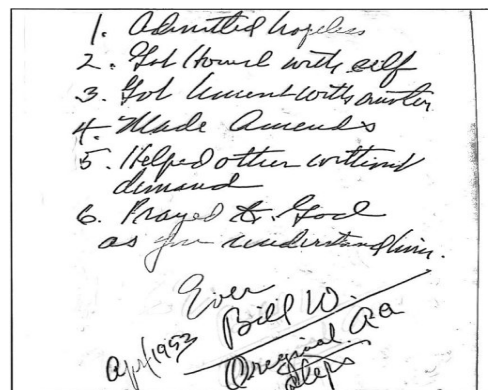 1. Admitted hopeless
2. Got honest with self
3. Got honest with another
4. Made Amends
5. Helped other without
demand
6. Prayed to God
as you understand him.
Ever
Bill W.
Apr/1953
Original AA
Steps